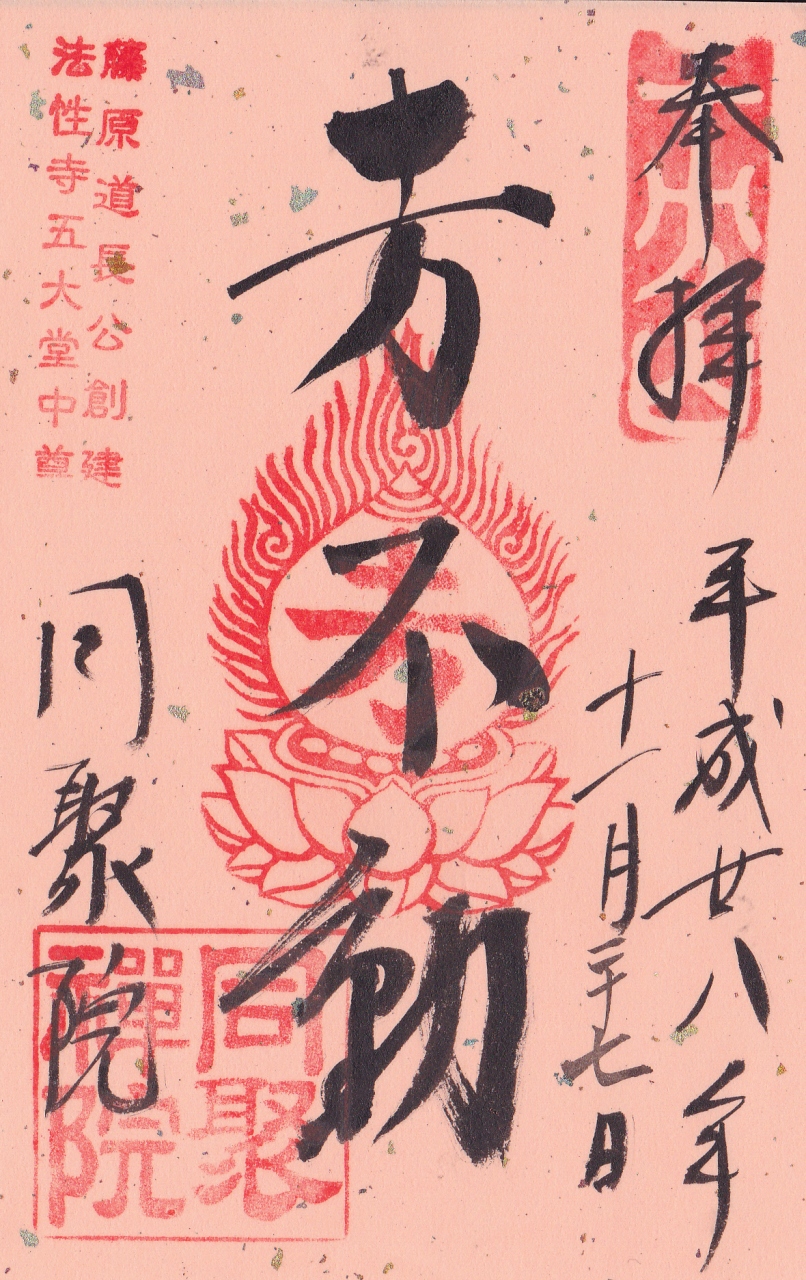 奉拝
平成廿八年
十一月二十七日
不動
藤原道長公創建
法性寺五大堂中尊
同聚院
同聚
禪院